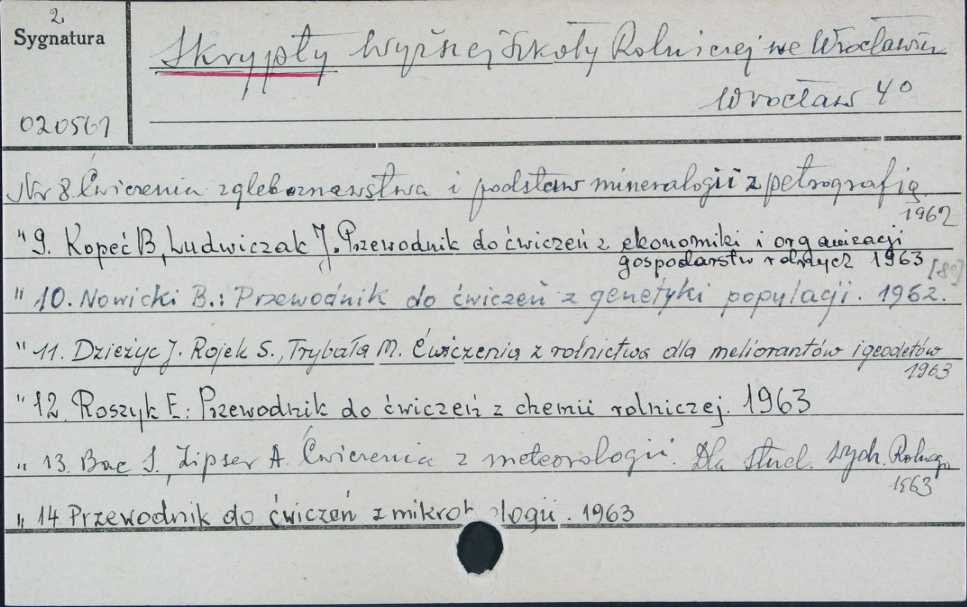 2.
Sygnatura
020561
Skrypty Wyższej Szkoły Rolniczej we Wrocławiu
Wrocław 4°
Nr 8. Ćwiczenia z gleboznawstwa i podstaw mineralogii z petrografią
1962
" 9. Kopeć B, Ludwiczak J. Przewodnik do ćwiczeń z ekonomiki i organizacji
gospodarstw rolnych 1963 [8°]
" 10. Nowicki B.: Przewodnik do ćwiczeń z genetyki populacji. 1962.
" 11. Dzieżyc J. Rojek S., Trybała M. Ćwiczenia z rolnictwa dla meliorantów i geodetów
1963
" 12. Roszyk E.: Przewodnik do ćwiczeń z chemii rolniczej. 1963
" 13. Bac S, Zipser A. Ćwiczenia z meteorologii. Dla stud. wydz. Roln.
1963
" 14 Przewodnik do ćwiczeń z mikrobiologii. 1963